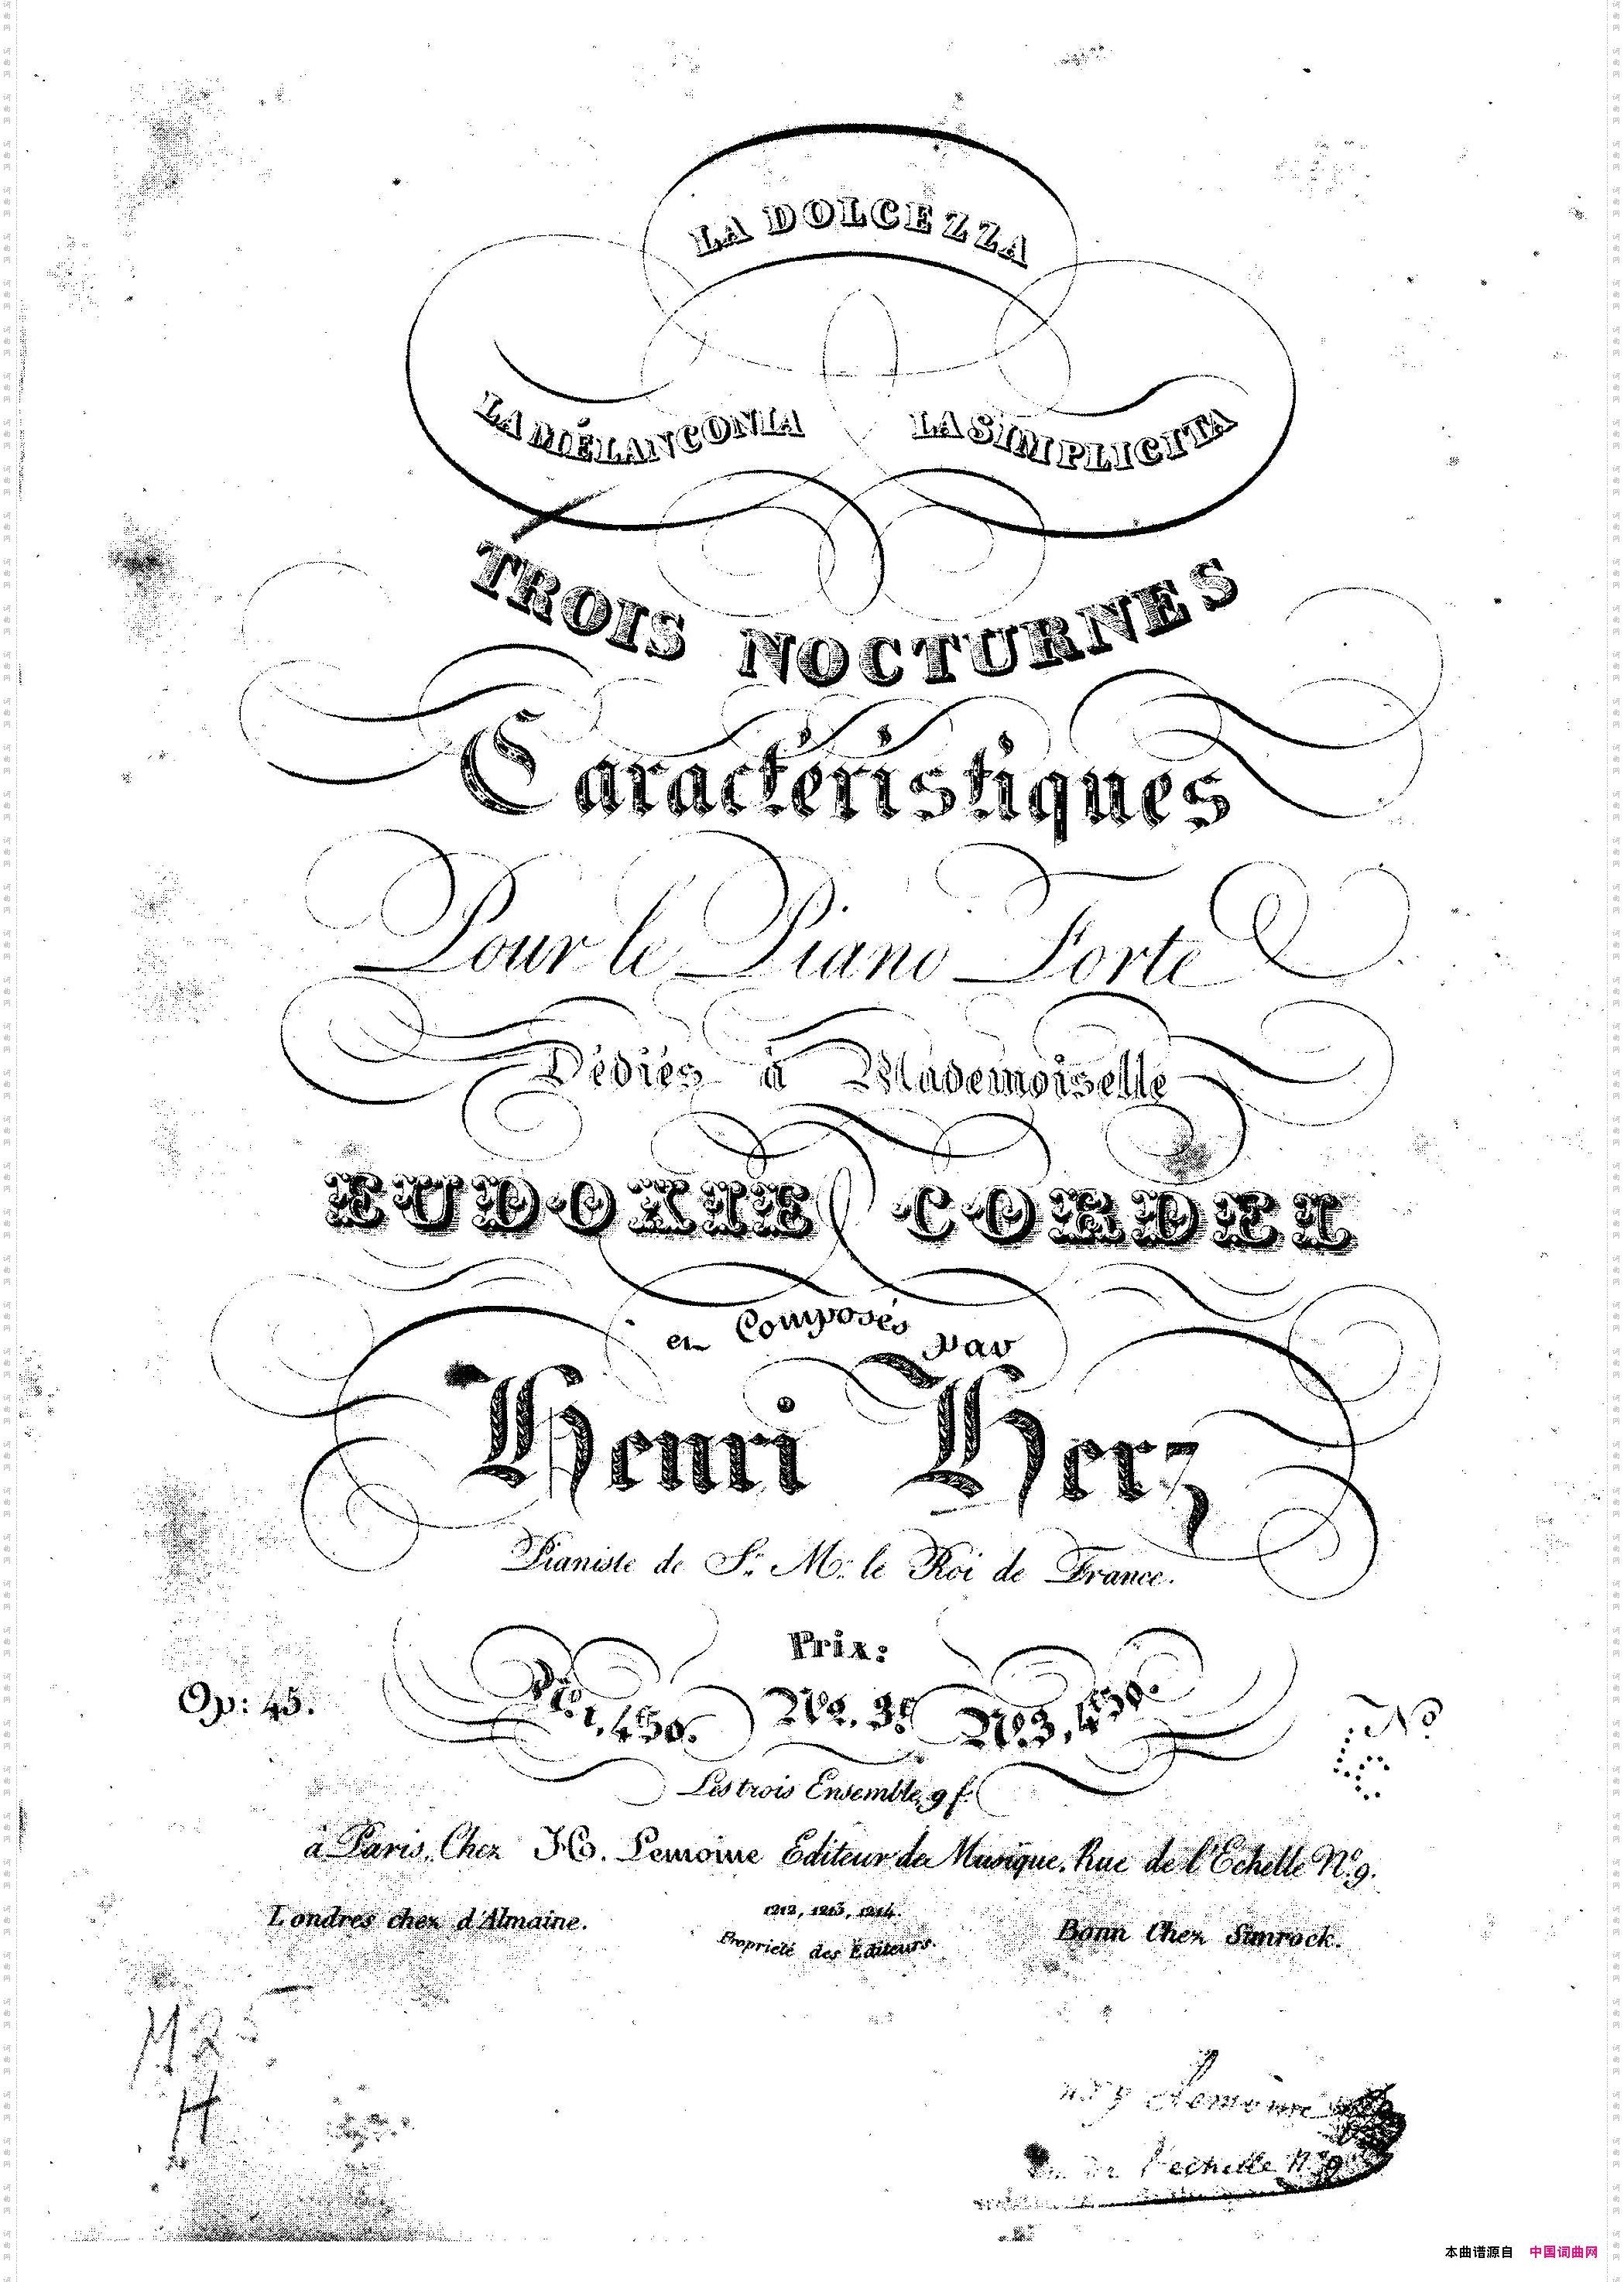 LA DOLCEZZA
LA MÉLANCONIA
LA SIMPLICITA
TROIS NOCTURNES
Caractéristiques
Pour le Piano Forte
Dédiés à Mademoiselle
EUDOXIE CORDEL
et Composés par
Henri Herz
Pianiste de S. M. le Roi de France.
Prix:
Op: 45.
No. 1, 4 50. No. 2, 3f. No. 3, 4 50.
No
Les trois Ensemble, 9 f.
à Paris, Chez H. Lemoine Editeur de Musique, Rue de l'Echelle No. 9.
Londres chez d'Almaine.
1212, 1213, 1214.
Propriété des Editeurs.
Bonn Chez Simrock.
Lemoine
de l'echelle No. 9
本曲谱源自 中国词曲网